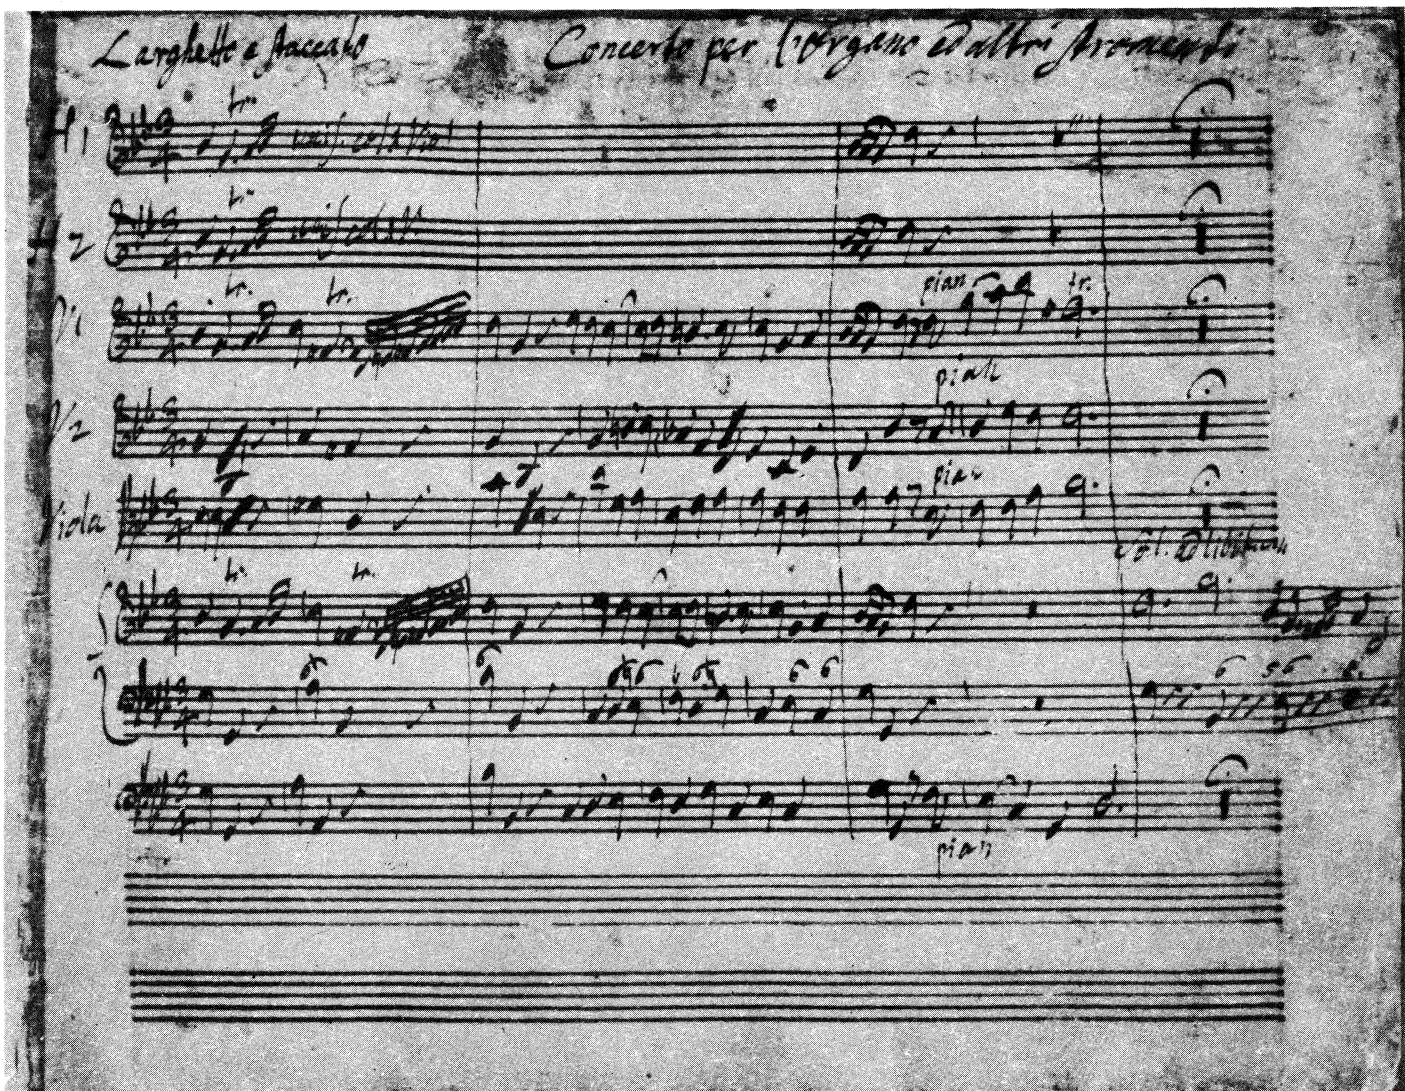 Larghetto e staccato Concerto per l'organo ed altri stromenti
H1 tr. unis. col 1 Vio
H2 tr. unis. col 1 V
V1 tr. tr. pian tr.
V2 pian
Viola pian
ad libitum
tr. tr.
6 6 6 6 6 6 6 6 5 6 6
pian